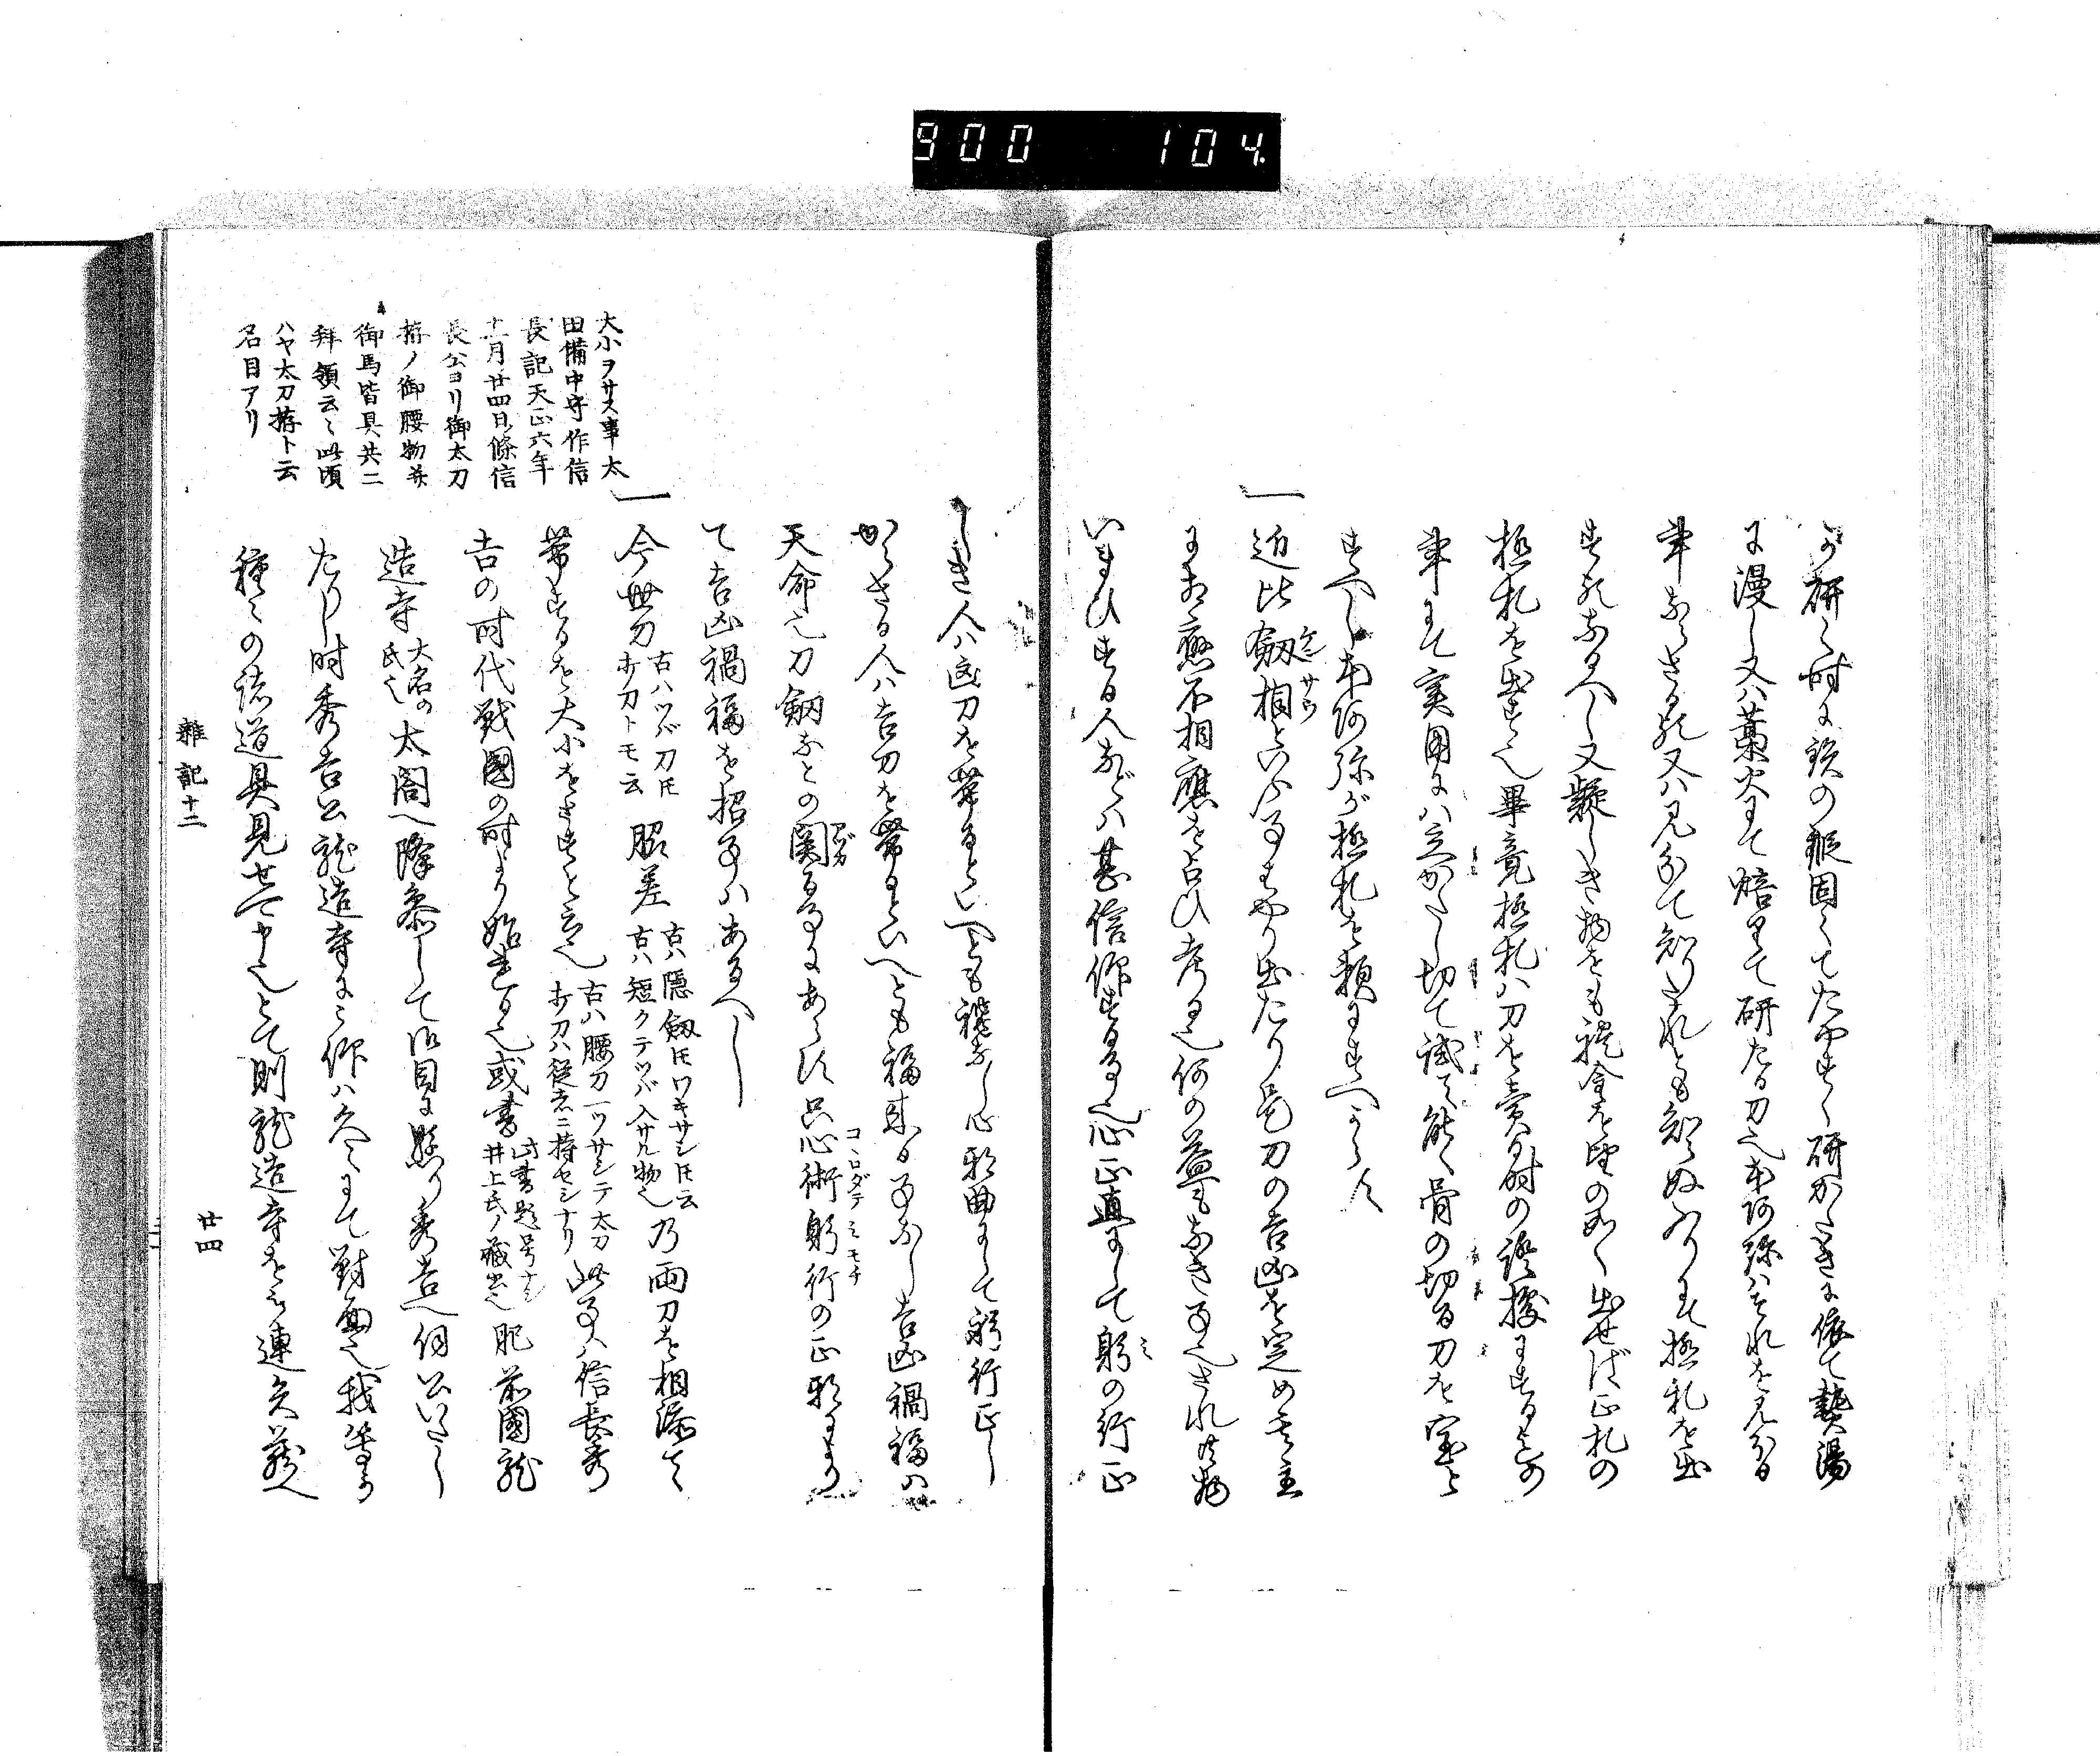 900 104
に漫し又ハ藁火にて焙りて研たる刀也本阿弥ハそれを見分る
事ならさる歟又ハ見分て知りたれとも知らぬふりにて極札を出
極札を出す也畢竟極札ハ刀を賣る時の證據にするため
事にて実用にハ立かたし切て試て能く骨の切る刀を宝と
すへし本阿弥が極札を頼にすへからす
一 近比劔相といふ事はやり出たり是刀の吉凶を定め其主
に相應不相應を占ひ考る也何の益もなき事也され共物
いまひする人などハ甚信仰する事也心正直にして躬の行正
しき人ハ凶刀を帯るといへとも禍なし心邪曲にして躬行正し
からさる人ハ吉刀を帯るといへとも福来る事なし吉凶禍福ハ
天命也刀劔などの関る事にあらす只心術躬行の正邪により
コヽロダテ ミモチ
て吉凶禍福を招く事ハあるへし
大小ヲサス事太
田備中守作信
長記天正六年
十一月廿四日條信
長公ヨリ御太刀
拵ノ御腰物并
御馬皆具共ニ
拜領云々此頃
ハヤ太刀拵ト云
名目アリ
一 今世刀 古ハツバ刀トモ 打刀トモ云 脇差 古ハ隠劔トモワキサシトモ云 古ハ短クテツバ入サル物也 乃両刀を相添て
帯するを大小をさすと云也 古ハ腰刀一ツサシテ太刀 打刀ハ從者ニ持セシナリ 此事ハ信長秀
吉の時代戦國の時より始れる也或書 此書題号ナシ 井上氏ノ蔵書也 肥前國龍
造寺 大名の 氏也 太閤へ降参して御目に懸り秀吉へ伺公いたし
たりし時秀吉公龍造寺に被仰ハ久々にて對面也我等か
種々の諸道具見せ可申也とて則龍造寺を被連矢蔵へ
雑記十二
廿四